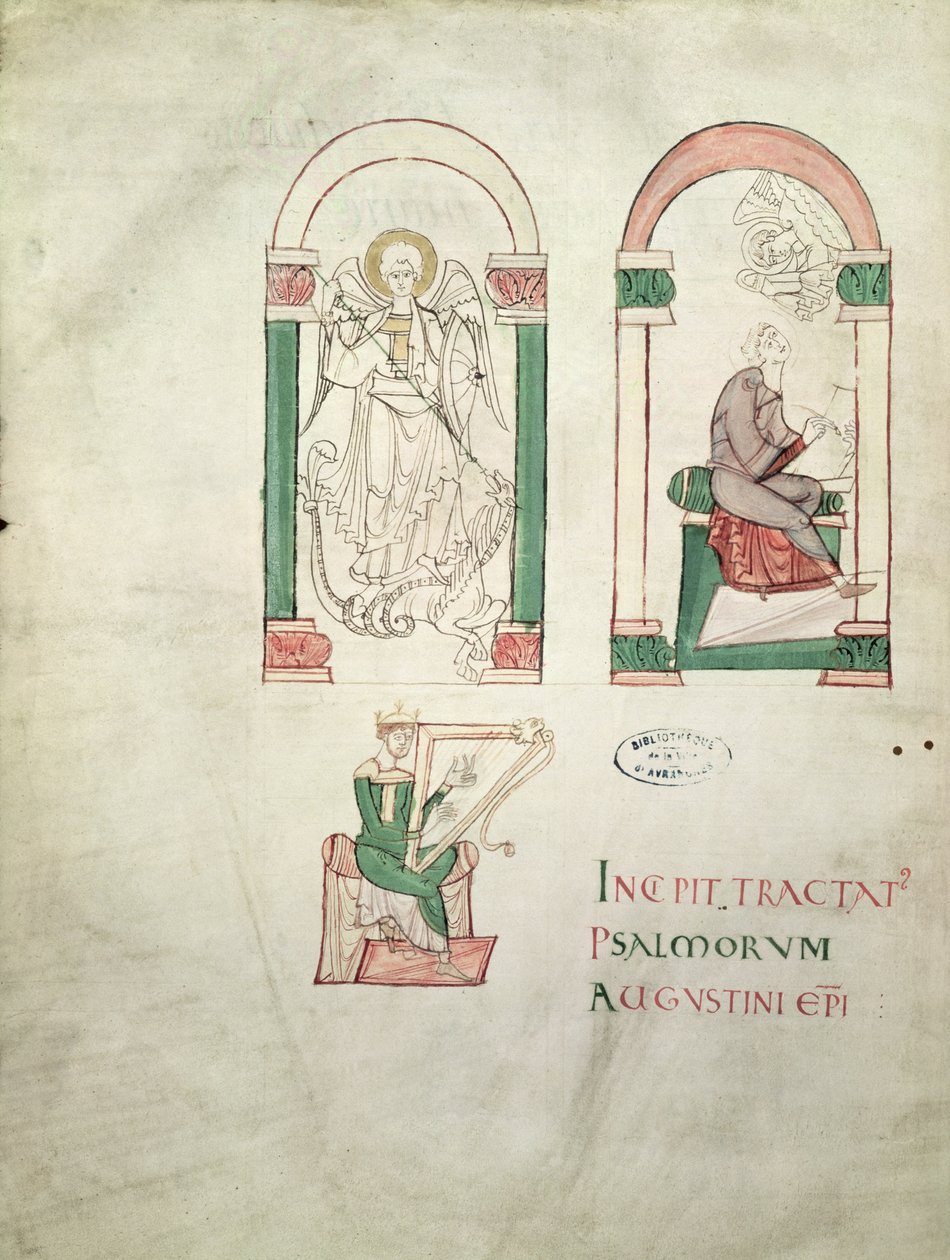 BIBLIOTHÈQUE
de la Ville
d'AVRANCHES
INCIPIT TRACTATꝰ
PSALMORVM
AUGVSTINI EP̅I